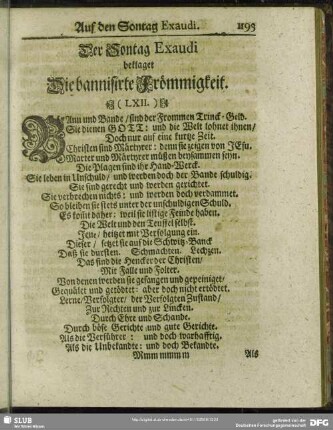 Auf den Sontag Exaudi. 1193
Der Sontag Exaudi
beklaget
Die bannisirte Frömmigkeit.
(LXII.)
BAnn und Bande / sind der Frommen Trinck-Geld.
Sie dienen GOTT: und die Welt lohnet ihnen /
Doch nur auf eine kurtze Zeit.
Christen sind Märtyrer: denn sie zeigen von JEsu.
Marter und Märtyrer müßen beysammen seyn.
Die Plagen sind ihr Hand-Werck.
Sie leben in Unschuld / und werden doch der Bande schuldig.
Sie sind gerecht und werden gerichtet.
Sie verbrechen nichts: und werden doch verdammet.
So bleiben sie stets unter der unschuldigen Schuld.
Es komt daher: weil sie listige Feinde haben.
Die Welt und den Teuffel selbst.
Jene / beitzet mit Verfolgung ein.
Dieser / setzet sie auf die Schwitz-Banck
Daß sie dursten. Schmachten. Lechzen.
Das sind die Hencker der Christen /
Mit Falle und Folter.
Von denen werden sie gefangen und gepeiniget /
Gequälet und getödtet: aber doch nicht ertödtet.
Lerne / Verfolgter / der Verfolgten Zustand /
Zur Rechten und zur Lincken.
Durch Ehre und Schande.
Durch böse Gerichte und gute Gerichte.
Als die Verführer: und doch warhafftig.
Als die Unbekandte: und doch Bekandte.
Mmm mmm m Als
SLUB
DFG